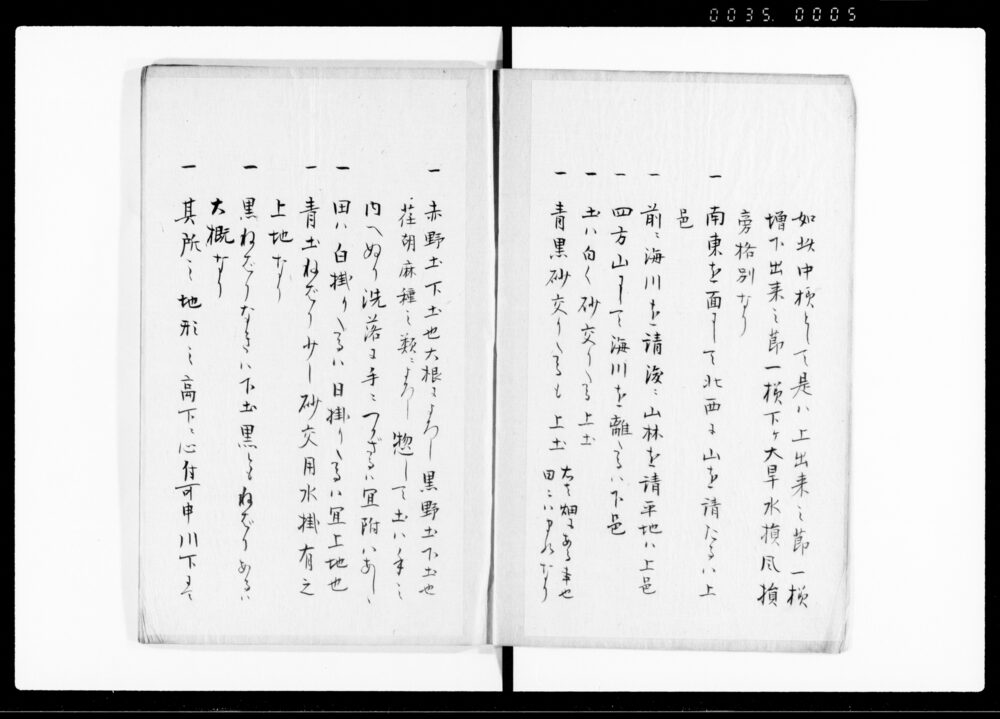 0035. 0005
如此中様にして是ハ上出来之節一様
増下出来之節一様下ケ大旱水損風損
旁格別なり
一 南東を面にして北西に山を請たるハ上
邑
一 前ニ海川を請後ニ山林を請平地ハ上邑
一 四方山にして海川を離るハ下邑
一 土ハ白く砂交りたる上土
一 青黒砂交りたるも上土 右を畑にある事也
田にハ なり
一 赤野土下土也大根によろし黒野土下土也
荏胡麻種之類ニよろし惣して土ハ手之
内へぬり洗落に手ニつかざるハ宜附ハあしゝ
一 田ハ白掛りたるハ日掛りたるハ宜上地也
一 青土ねばり少し砂交用水掛有之
上地なり
一 黒ねばりなきハ下土黒くもねばりあるハ
大概なり
一 其所之地形之高下ニ心付可申川下にて